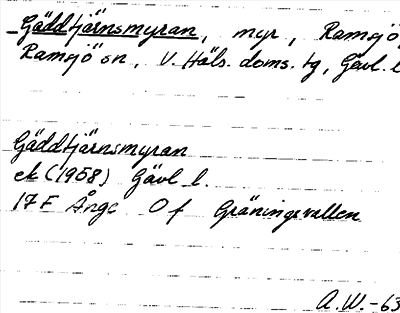 Gäddtjärnsmyran, myr, Ramsjö,
Ramsjö sn, V. Häls. doms. tg, Gävl. l
Gäddtjärnsmyran
ek (1958) Gävl l.
17F Ånge 0f Gräningsvallen
A.W.-63